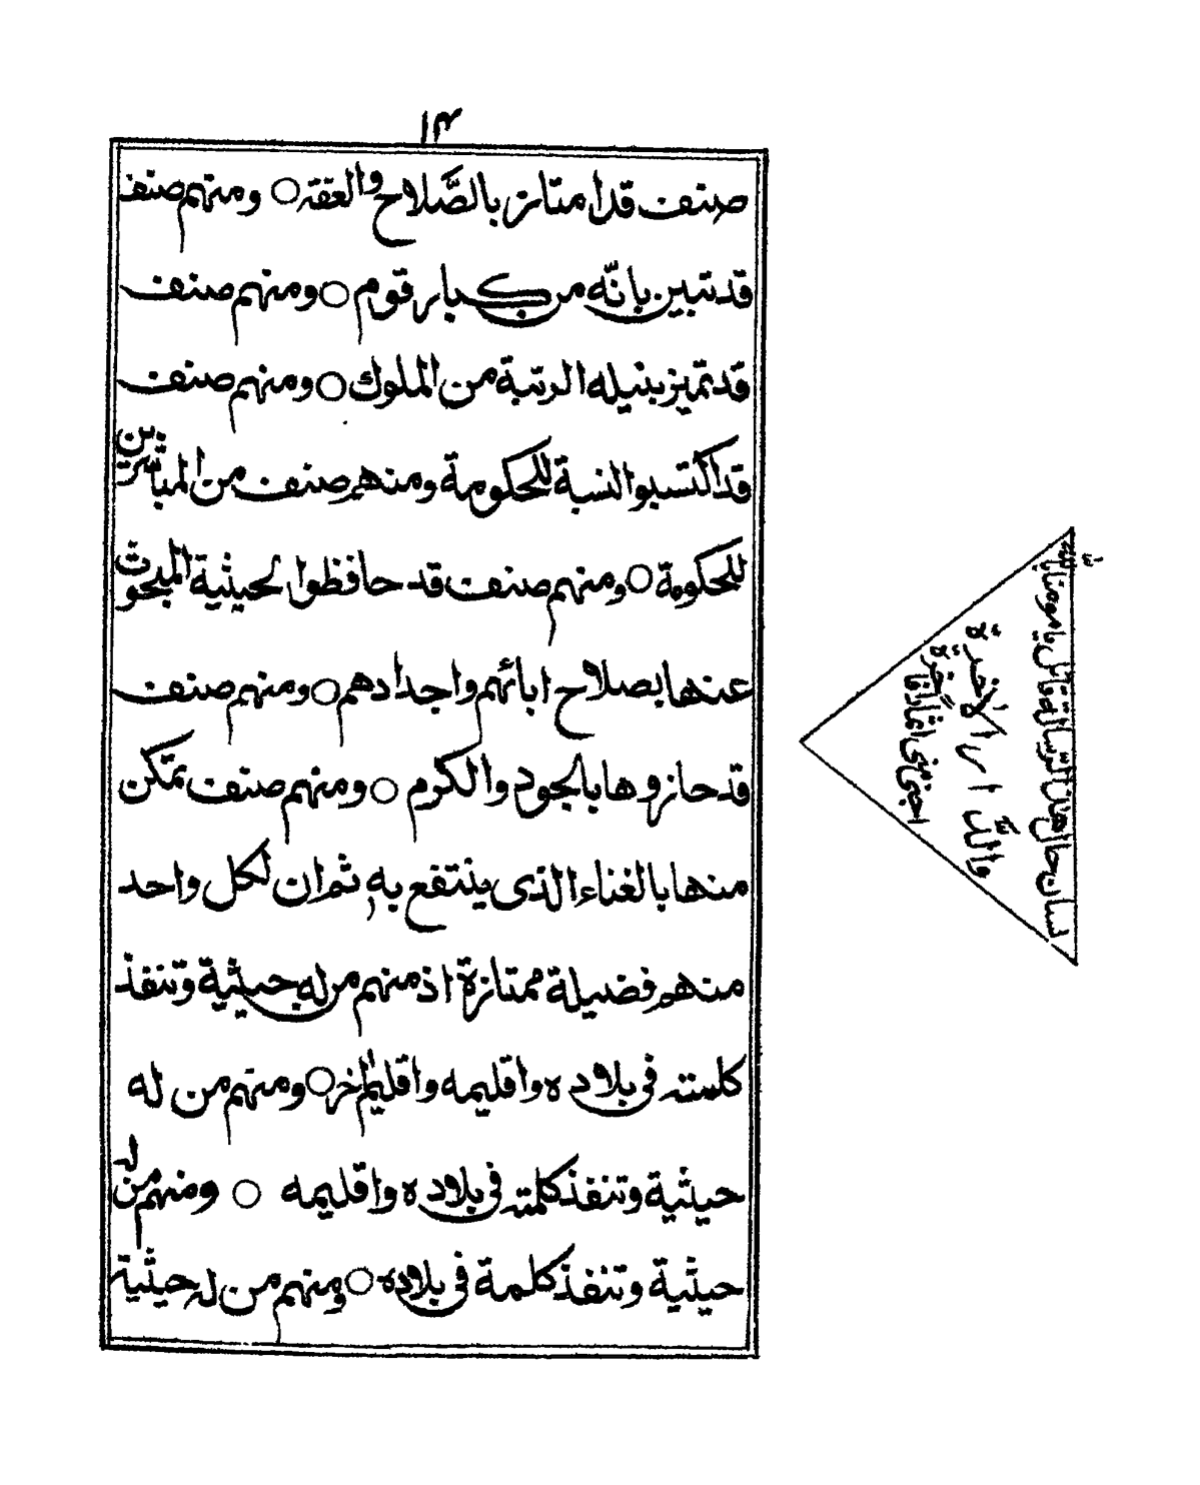 ١٣
صنف قد امتاز بالصَّلاح والعفة ○ ومنهم صنف
قد تبين بانّه من كبار قوم ○ ومنهم صنف
قد تميز بنيله الرتبة من الملوك ○ ومنهم صنف
قد اكتسبوا النسبة للحكومة ومنهم صنف من المباشرين
للحكومة ○ ومنهم صنف قد حافظوا لحيثية المبحوث
عنها بصلاح ابائهم واجدادهم ○ ومنهم صنف
قد حازوها بالجود والكرم ○ ومنهم صنف تمكن
منها بالغناء الذى ينتفع به ثم ان لكل واحد
منهم فضيلة ممتازة اذ منهم من له حيثية وتنفذ
كلمته فى بلاده واقليمه واقليم اخر ○ ومنهم من له
حيثية وتنفذ كلمته فى بلاده واقليمه ○ ومنهم من له
حيثية وتنفذ كلمة فى بلاده ○ ومنهم من له حيثية
لسان حال هذا الرسالة قائل يا
والله